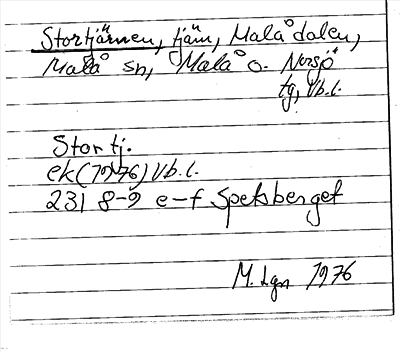 Stortjärnen, tjärn, Malådalen,
Malå sn, Malå o. Norsjö
tg, Vb.l.
Stortj.
ek(1976) Vb.l.
231 8-9 e-f Spetsberget
M. Lgn 1976